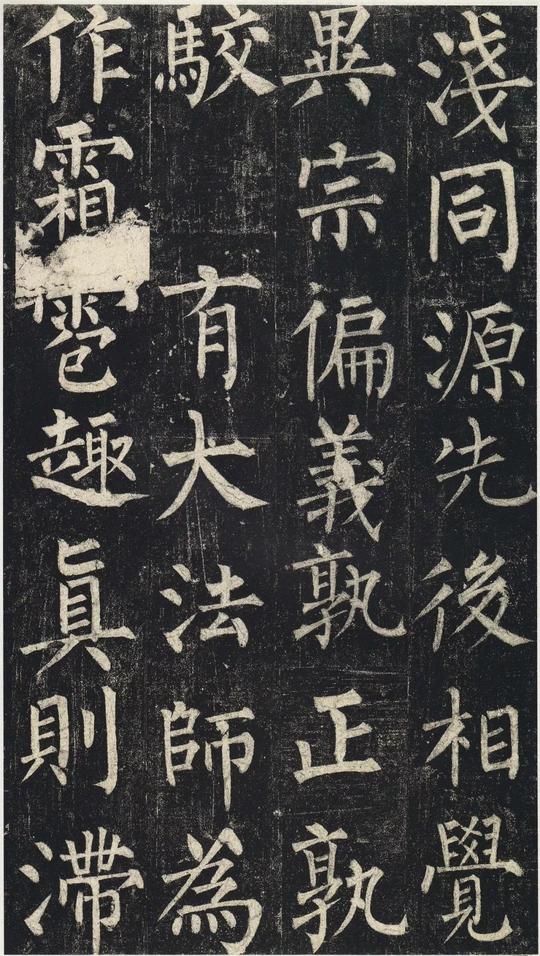 淺同源先後相覺
異宗偏義孰正孰
駮 有大法師為
作霜雹趣真則滯